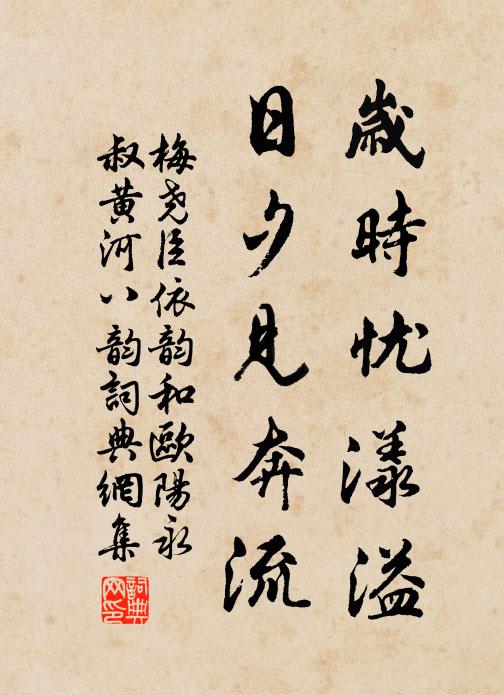 歲時忧漾溢
日夕見奔流
梅尧臣依韵和歐陽永
叔黃河八韵詞典網集
詞典网印